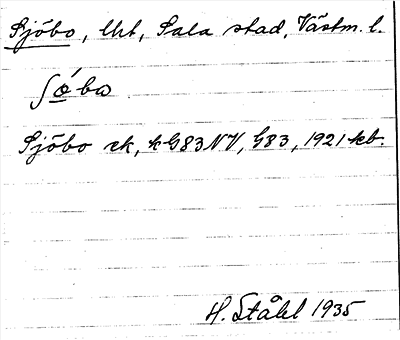 Sjöbo, lht, Sala stad, Västm. l.
ʃö́ba
Sjöbo ek, k G83 NV, G83, 1921 kb.
H. Ståhl 1935